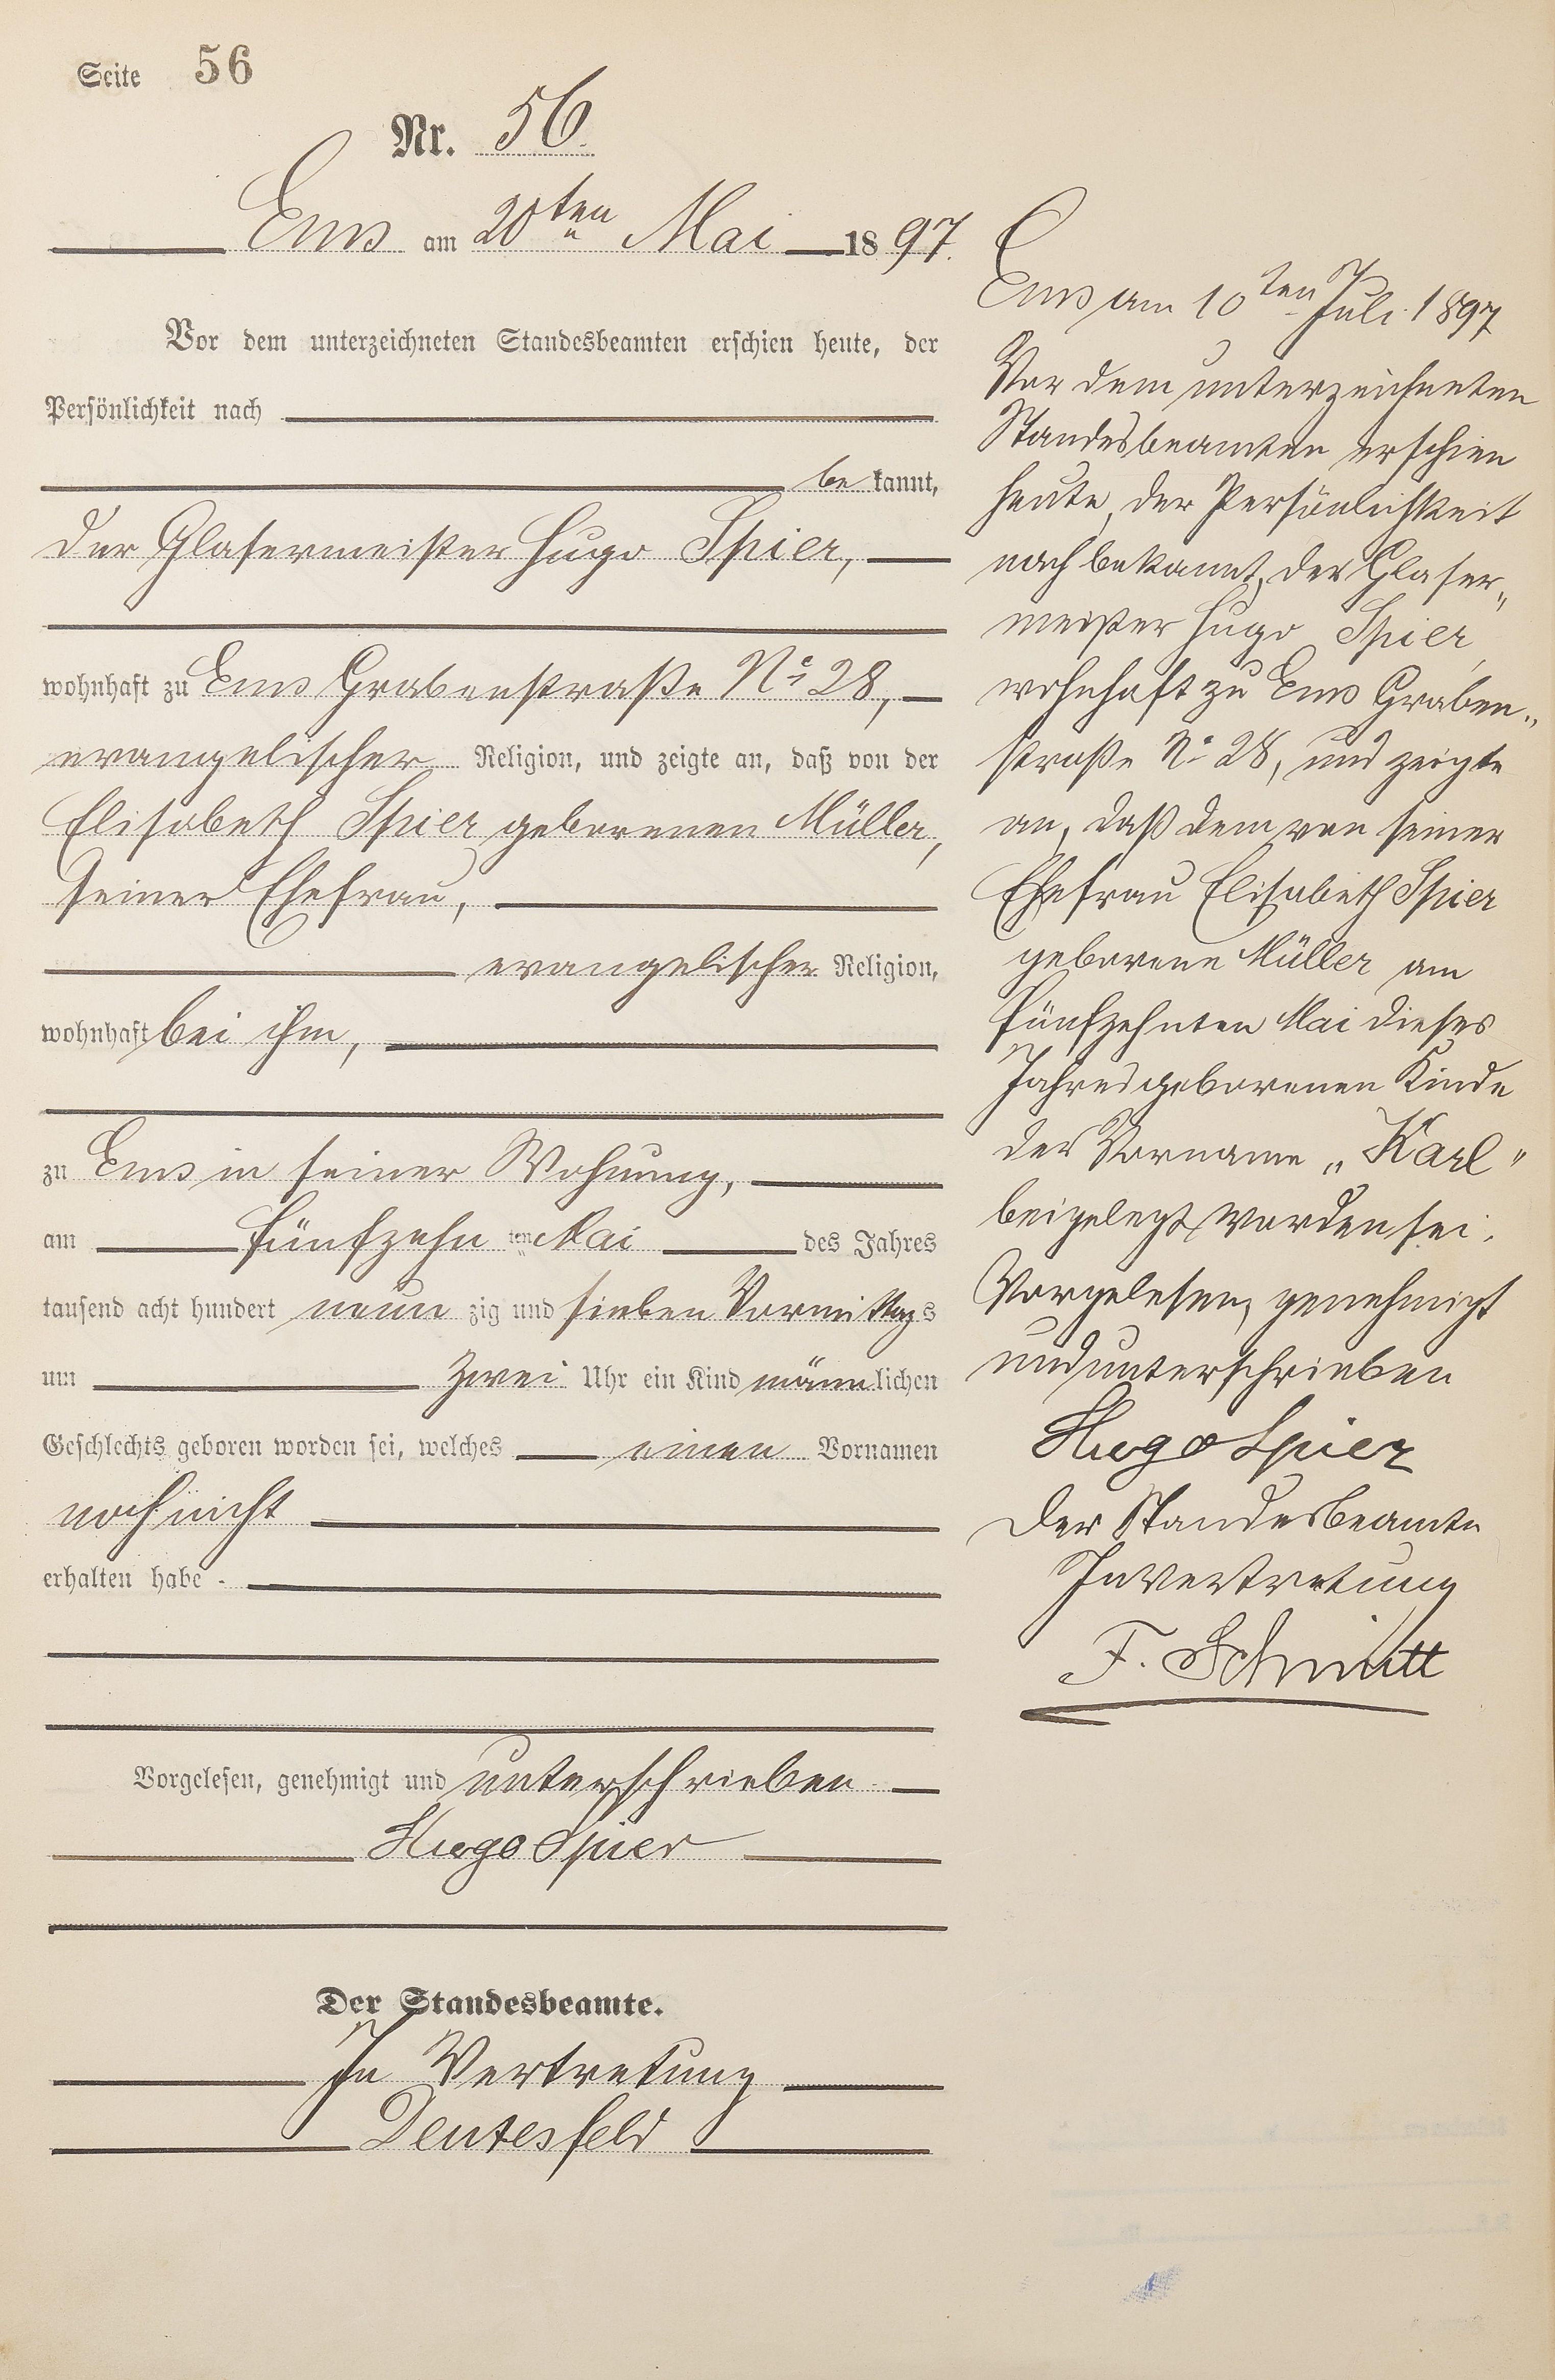 Seite 56
Nr. 56.
Ems am 20ten Mai 1897.
Vor dem unterzeichneten Standesbeamten erschien heute, der
Persönlichkeit nach
bekannt,
der Glasermeister Hugo Spier,
wohnhaft zu Ems Grabenstraße No 28,
evangelischer Religion, und zeigte an, daß von der
Elisabeth Spier geborenen Müller,
seiner Ehefrau,
evangelischer Religion,
wohnhaft bei ihm,
zu Ems in seiner Wohnung,
am fünfzehnten Mai des Jahres
tausend acht hundert neunzig und sieben Vormittags
um zwei Uhr ein Kind männlichen
Geschlechts geboren worden sei, welches einen Vornamen
noch nicht
erhalten habe.
Vorgelesen, genehmigt und unterschrieben
Hugo Spier
Der Standesbeamte.
In Vertretung
Deutesfeld
Ems am 10ten Juli 1897
Vor dem unterzeichneten
Standesbeamten erschien
heute, der Persönlichkeit
nach bekannt, der Glaser„
meister Hugo Spier,
wohnhaft zu Ems Graben„
straße No 28, und zeigte
an, daß dem von seiner
Ehefrau Elisabeth Spier
geborene Müller am
fünfzehnten Mai dieses
Jahres geborenen Kinde
der Vorname „Karl"
beigelegt worden sei.
Vorgelesen, genehmigt
und unterschrieben
Hugo Spier
Der Standesbeamte
In Vertretung
F. Schmitt